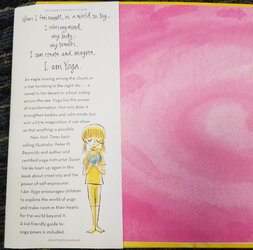 When I feel small in a world so big...
I calm my mind,
my body,
my breath.
I can create and imagine.
I am Yoga.
An eagle soaring among the clouds or
a star twinkling in the night sky ... a
camel in the desert or a boat sailing
across the sea. Yoga has the power of
transformation. Not only does it
strengthen bodies and calm minds, but
with a little imagination it can show us
that anything is possible.
New York Times best-
selling illustrator Peter H.
Reynolds and author and
certified yoga instructor Susan
Verde team up again in this
book about creativity and the
power of self-expression.
I Am Yoga encourages children
to explore the world of yoga
and make room in their hearts
for the world beyond it.
A kid-friendly guide to
yoga poses is included.